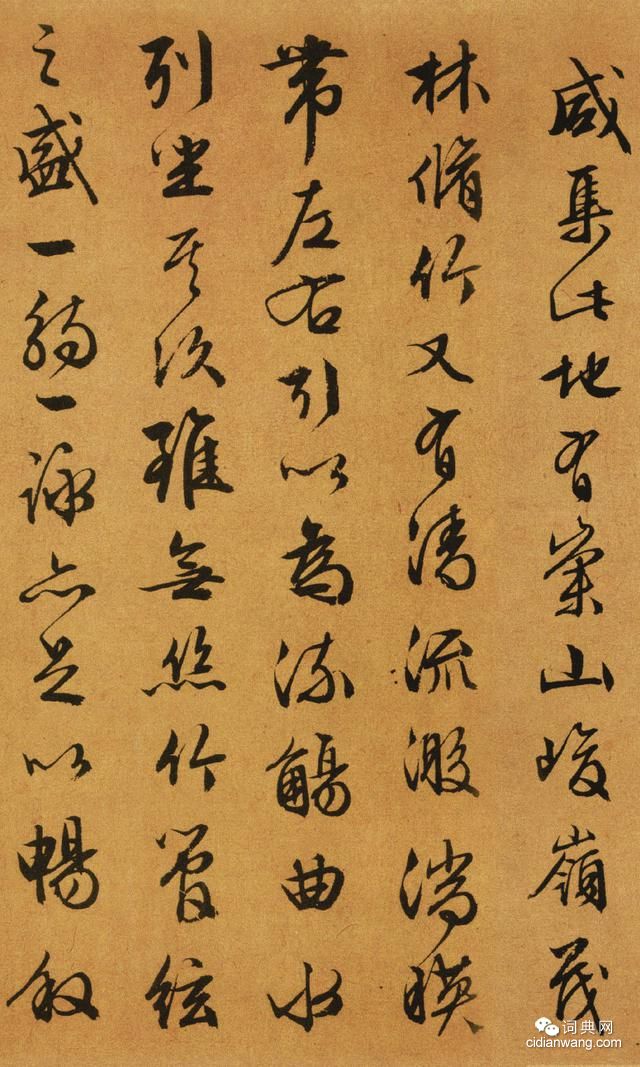 咸集此地有崇山峻嶺茂
林脩竹又有清流激湍暎
帶左右引以為流觴曲水
列坐其次雖無絲竹管絃
之盛一觴一詠亦足以暢敘
词典网
cidianwang.com